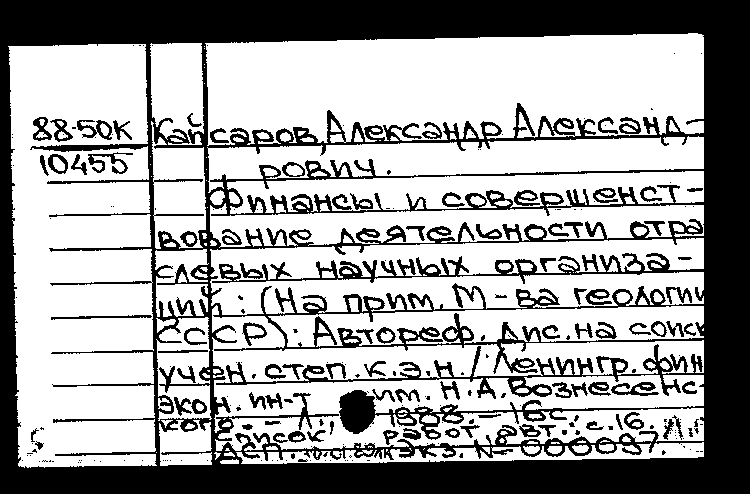 88-50К
10455
Кайсаров, Александр Александ-
рович.
Финансы и совершенст-
вование деятельности отра
слевых научных организа-
ций: (На прим. М-ва геологии
СССР): Автореф. дис. на соиск
учен. степ. к.э.н. / Ленингр. фин
экон. ин-т им. Н.А. Вознесенс-
кого. – Л., 1988. – 16с.
Список работ авт.: с.16.
ДСП. Экз. № 000097.